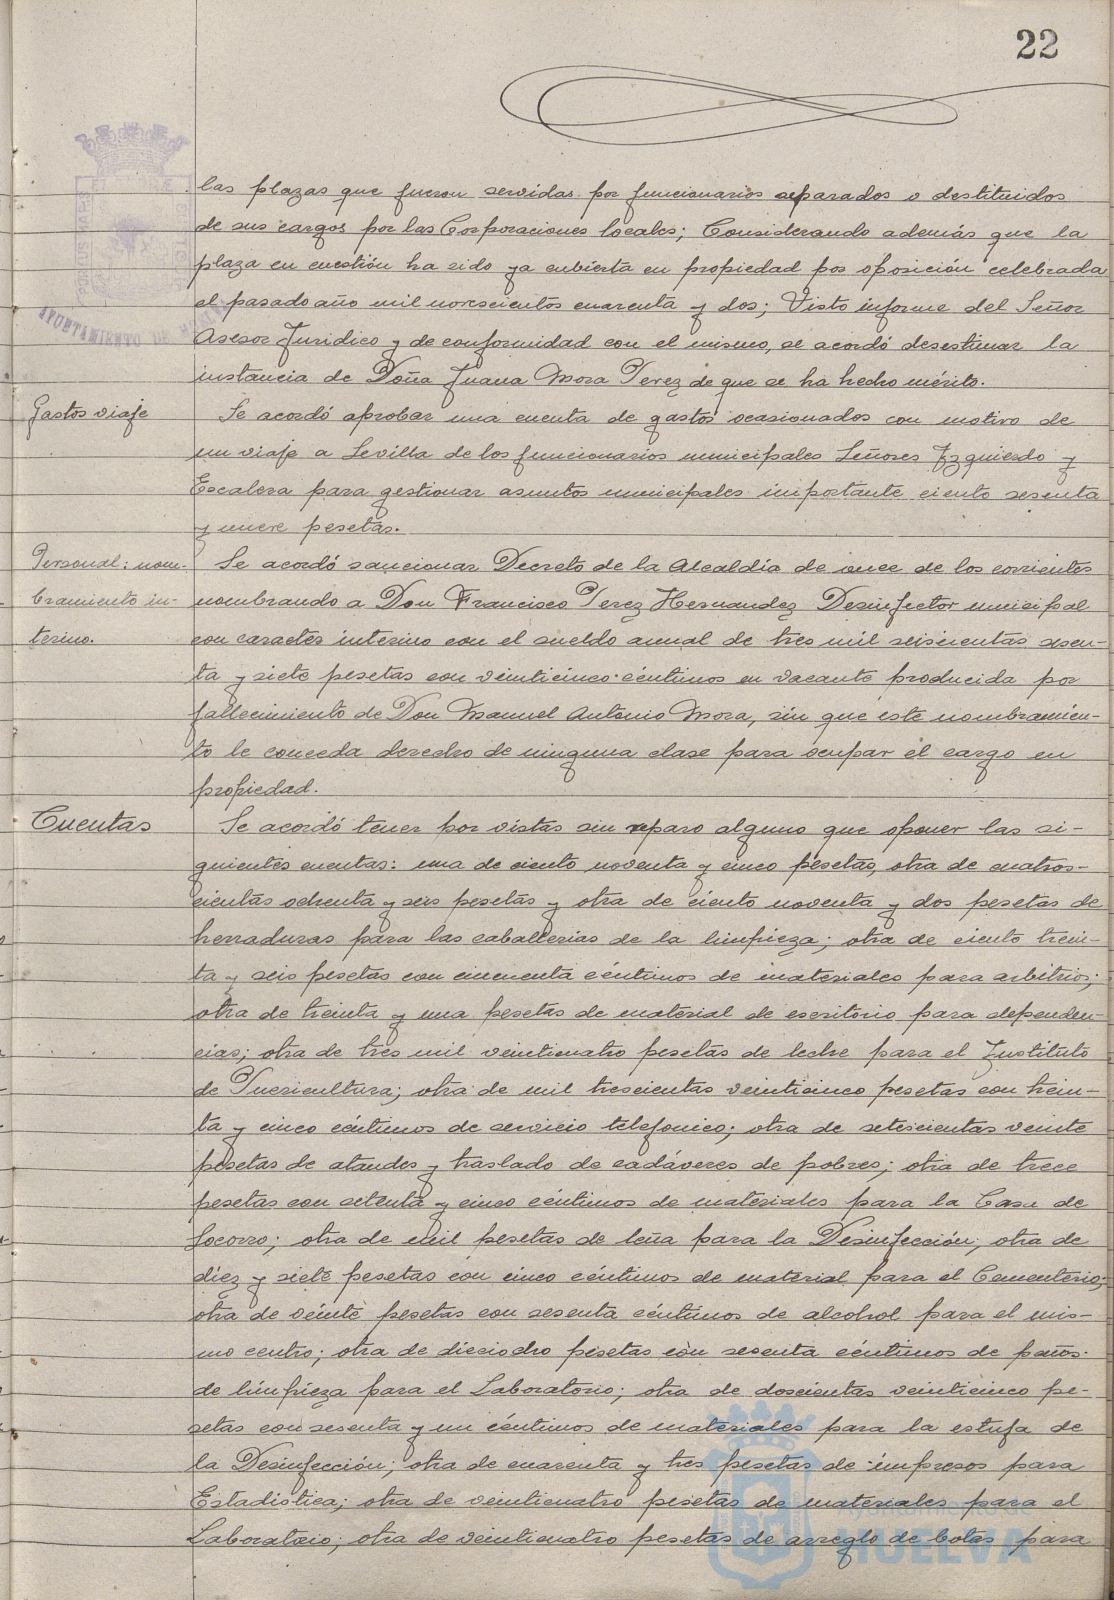 22
las plazas que fueron servidas por funcionarios separados o destituidos
de sus cargos por las Corporaciones locales; Considerando además que la
plaza en cuestión ha sido ya cubierta en propiedad por oposición celebrada
el pasado año mil novescientos cuarenta y dos; Visto informe del Señor
Asesor Juridico y de conformidad con el mismo, se acordó desestimar la
instancia de Doña Juana Mora Perez de que se ha hecho mérito.
Gastos viaje
Se acordó aprobar una cuenta de gastos ocasionados con motivo de
un viaje a Sevilla de los funcionarios municipales Señores Izquierdo y
Escalera para gestionar asuntos municipales importante ciento sesenta
y nueve pesetas.
Personal: nom-
bramiento in-
terino.
Se acordó sancionar Decreto de la Alcaldía de once de los corrientes
nombrando a Don Francisco Perez Hernandez Desinfector municipal
con caracter interino con el sueldo anual de tres mil seiscientas sesen-
ta y siete pesetas con veinticinco céntimos en vacante producida por
fallecimiento de Don Manuel Antonio Mora, sin que este nombramien-
to le conceda derecho de ninguna clase para ocupar el cargo en
propiedad.
Cuentas
Se acordó tener por vistas sin reparo alguno que oponer las si-
guientes cuentas: una de ciento noventa y cinco pesetas, otra de cuatros-
cientas ochenta y seis pesetas y otra de ciento noventa y dos pesetas de
herraduras para las caballerias de la limpieza; otra de ciento trein-
ta y seis pesetas con cincuenta céntimos de materiales para arbitrios;
otra de treinta y una pesetas de material de escritorio para dependen-
cias; otra de tres mil veinticuatro pesetas de leche para el Instituto
de Puericultura; otra de mil trescientas veinticinco pesetas con trein-
ta y cinco céntimos de servicio telefonico; otra de setescientas veinte
pesetas de ataudes y traslado de cadáveres de pobres; otra de trece
pesetas con setenta y cinco céntimos de materiales para la Casa de
Socorro; otra de mil pesetas de leña para la Desinfección; otra de
diez y siete pesetas con cinco céntimos de material para el Cementerio;
otra de veinte pesetas con sesenta céntimos de alcohol para el mis-
mo centro; otra de dieciocho pesetas con sesenta céntimos de paños
de limpieza para el Laboratorio; otra de doscientas veinticinco pe-
setas con sesenta y un céntimos de materiales para la estufa de
la Desinfección; otra de cuarenta y tres pesetas de impresos para
Estadistica; otra de veinticuatro pesetas de materiales para el
Laboratorio; otra de veinticuatro pesetas de arreglo de botas para
AYUNTAMIENTO DE HUELVA
Ayuntamiento de
HUELVA